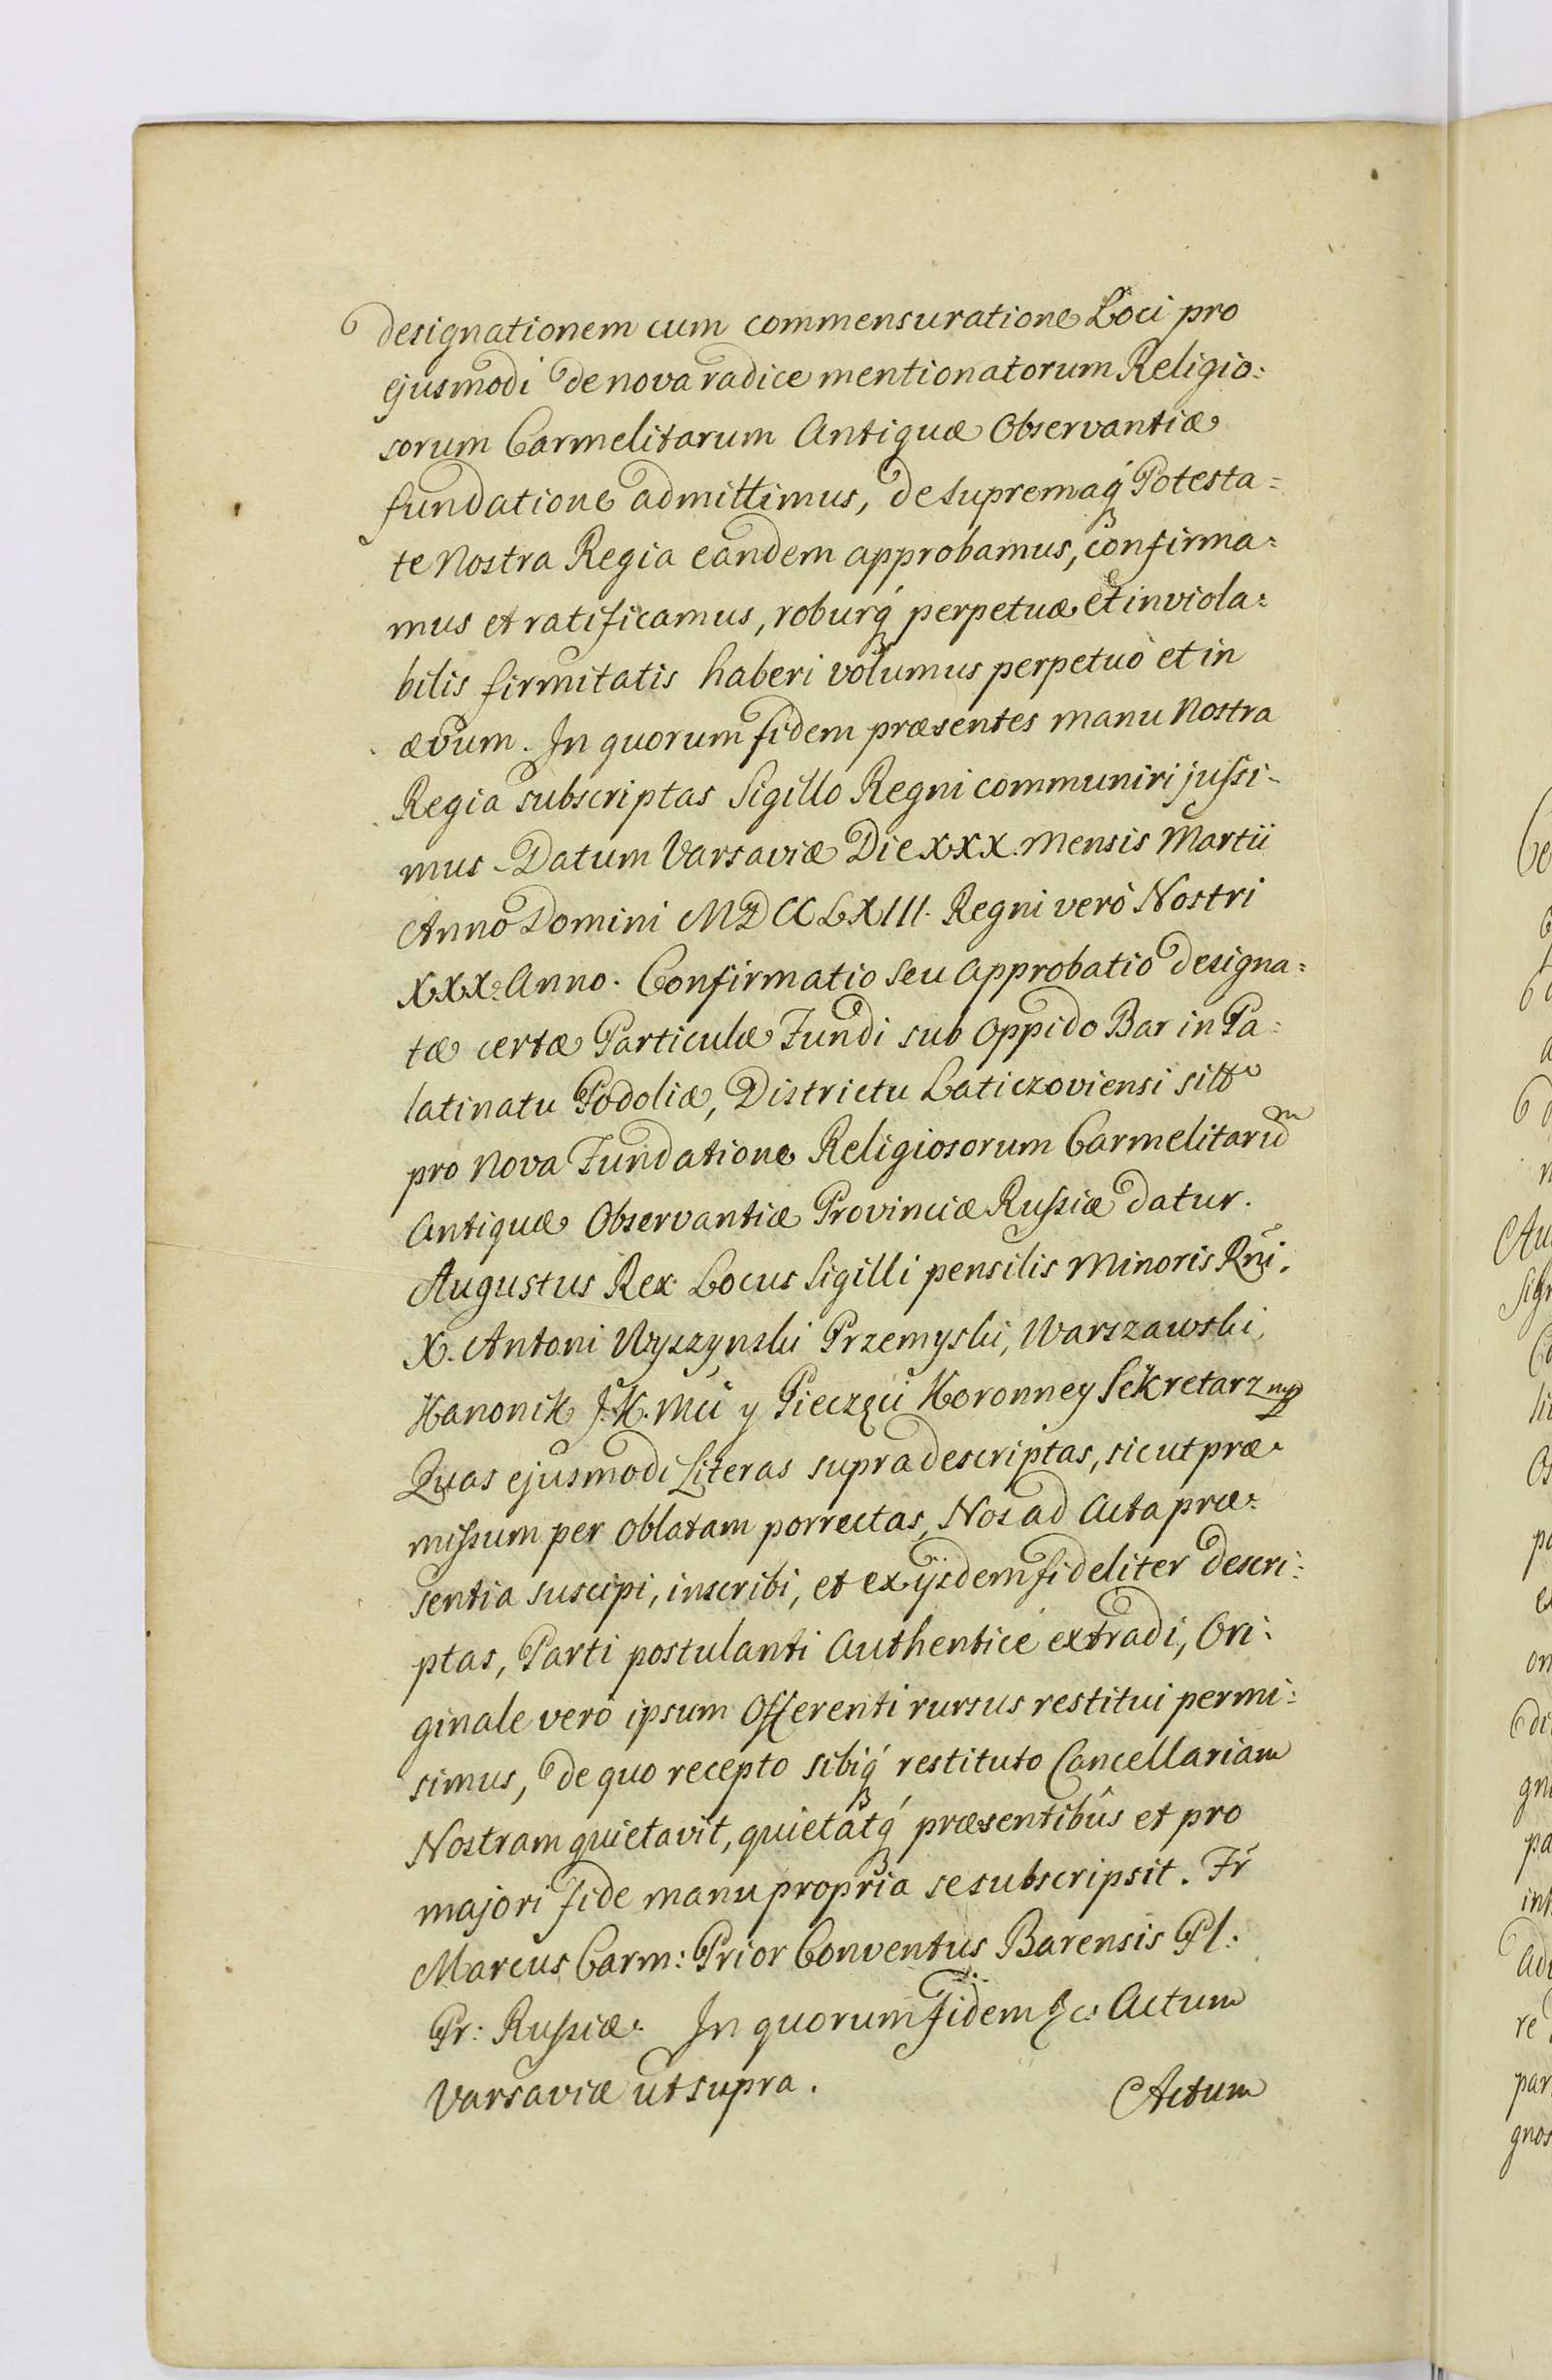 designationem cum commensuratione Loci pro
ejusmodi de nova radice mentionatorum Religio:
sorum Carmelitarum Antiquæ Observantiæ
fundatione admittimus, de supremaq́ Potesta:
te Nostra Regia eandem approbamus, confirma:
mus et ratificamus, roburq́ perpetuæ et inviola:
bilis firmitatis haberi volumus perpetuò et in
ævum. In quorum fidem præsentes manu Nostra
Regia subscriptas Sigillo Regni communiri jussi-
mus. Datum Varsaviæ Die XXX. Mensis Martii
Anno Domini MDCCLXIII. Regni verò Nostri
XXX. Anno. Confirmatio seu approbatio designa:
tæ certæ Particulæ Fundi sub Oppido Bar in Pa:
latinatu Podoliæ, Districtu Laticzoviensi
pro Nova Fundatione Religiosorum Carmelitarum
Antiquæ Observantiæ Provinciæ Russiæ datur.
Augustus Rex. Locus Sigilli pensilis Minoris Rñi.
X. Antoni Wyszynski Przemyski, Warszawski,
Kanonik J. K. Mci y Pieczęci Koronney Sekretarz mp
Quas ejusmodi Literas supradescriptas, sicut præ:
missum per oblatam porrectas, Nos ad Acta præ:
sentia suscipi, inscribi, et ex ijsdem fideliter descri:
ptas, Parti postulanti Authenticè extradi, Ori:
ginale verò ipsum Offerenti rursus restitui permi:
simus, de quo recepto sibiq́ restituto Cancellariam
Nostram quietavit, quietatq́ præsentibûs et pro
majori fide manu propria se subscripsit. Fr
Marcus Carm: Prior Conventus Barensis Pl:
Pr: Russiæ. In quorum Fidem &c. Actum
Varsaviæ ut supra.
Actum